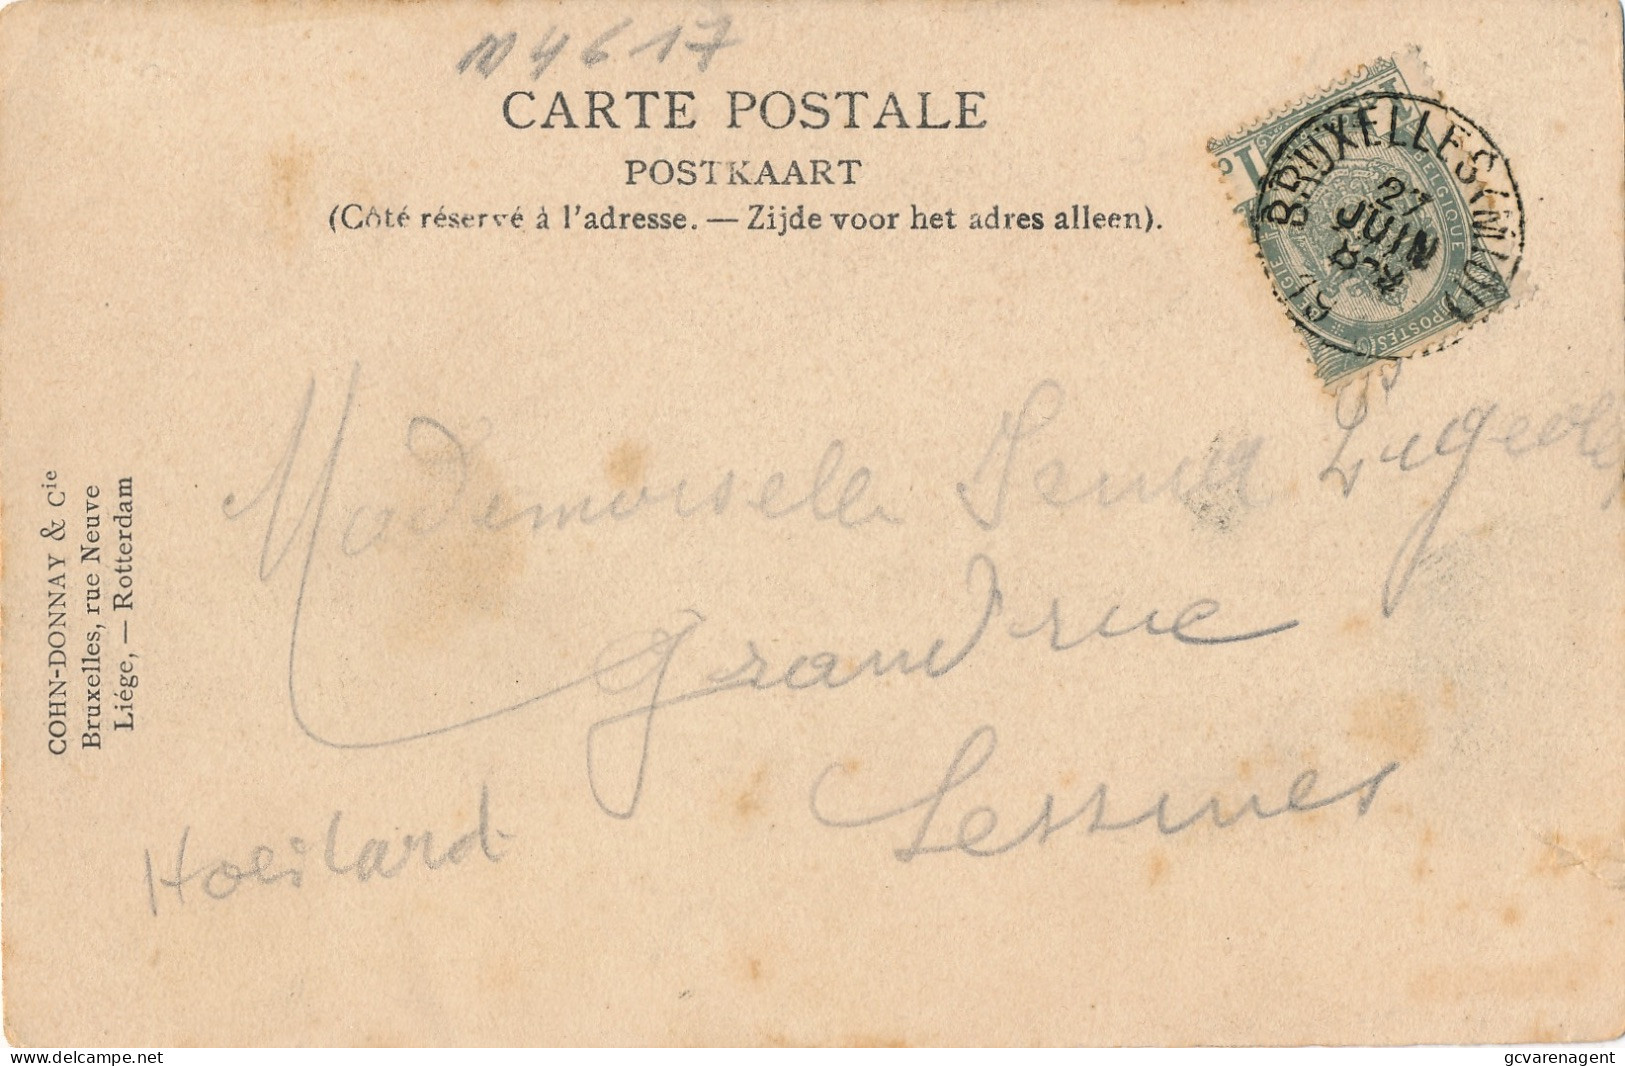 N4617
CARTE POSTALE
POSTKAART
(Côté réservé à l'adresse. — Zijde voor het adres alleen).
BRUXELLES (MIDI)
27
JUIN
BELGIQUE
POSTES
Mademoiselle
Grand rue
Lessines
COHN-DONNAY & Cie
Bruxelles, rue Neuve
Liége, — Rotterdam
delcampe.net
gcvarenagent